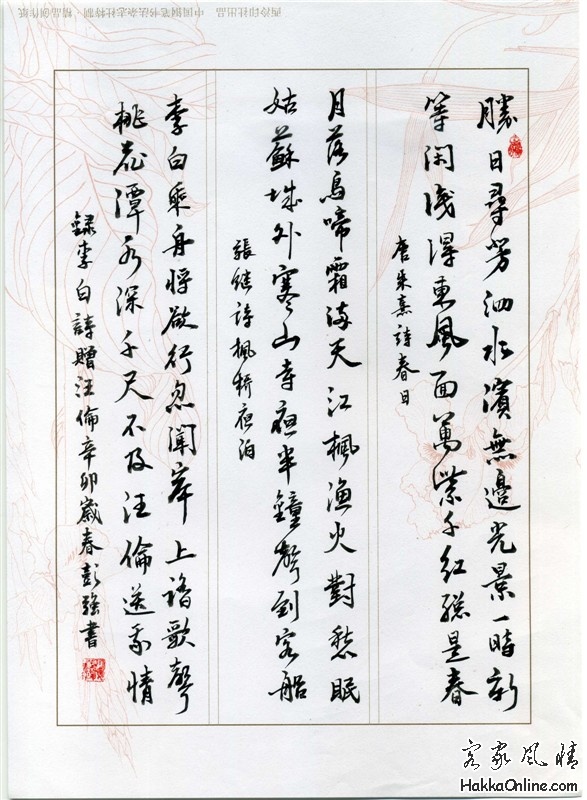 西泠印社出品 中国钢笔书法杂志社特制·精品创作纸
勝日尋芳泗水濱無邊光景一時新
等閑識得東風面萬紫千紅總是春
唐朱熹詩春日
月落烏啼霜滿天江楓漁火對愁眠
姑蘇城外寒山寺夜半鐘聲到客船
張継詩楓橋夜泊
李白乘舟將欲行忽聞岸上踏歌聲
桃花潭水深千尺不及汪倫送我情
録李白詩贈汪倫辛卯歲春彭強書
客家風情
HakkaOnline.com